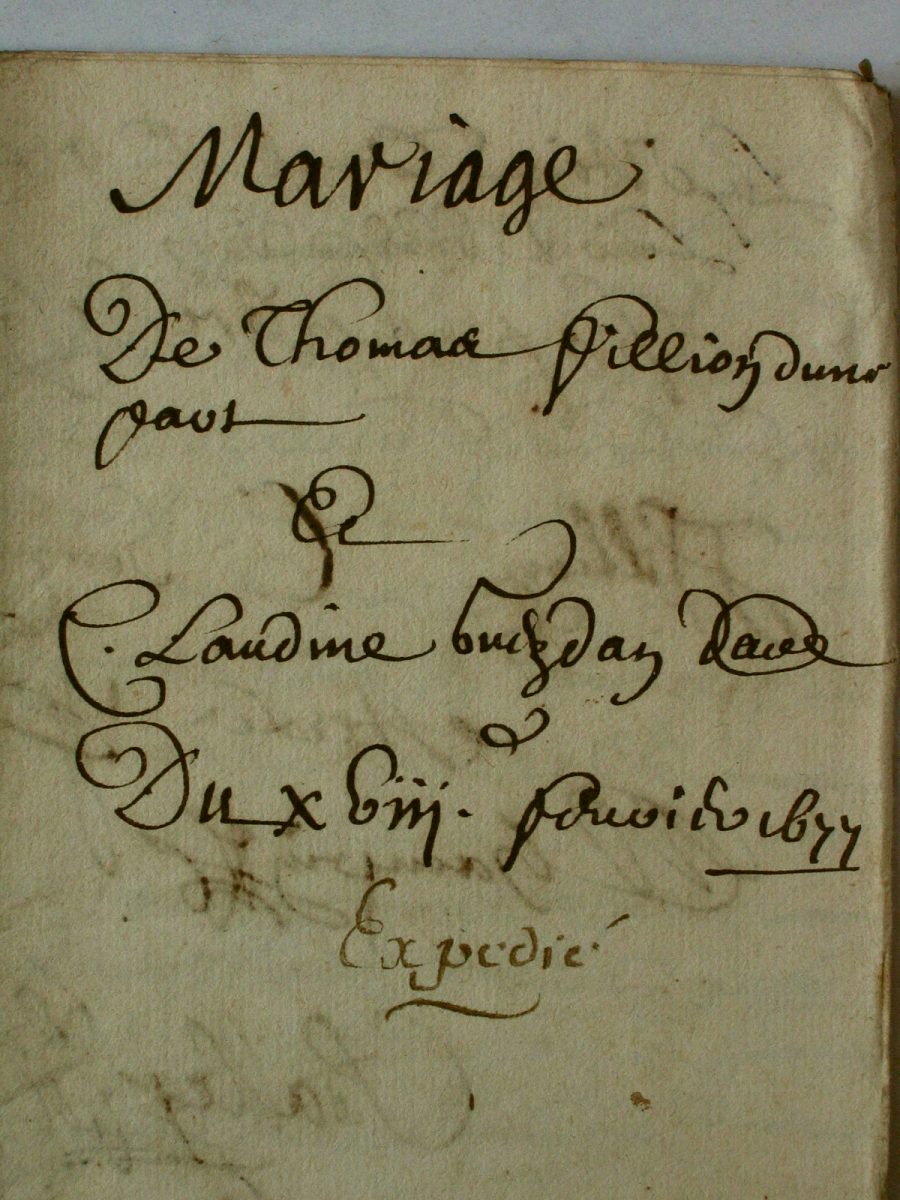 Mariage
De Thomas fillion dune
part
Et
Claudine
Du xviij. febvrier 1677
Expedié